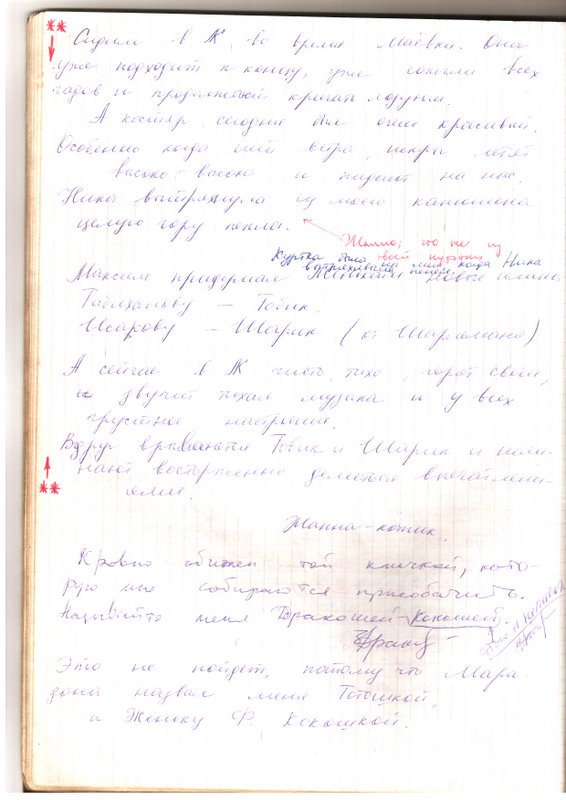 **
Сидим в "К" во время маёвки. Она
уже подходит к концу, уже сожгли всех
гадов и продолжают кричать лозунги.
А костёр сегодня был очень красивый.
Особенно когда шёл ветра, искры летят
высоко-высоко и падают на нас.
Ника вытряхнула из моего капюшона
целую гору пепла.
Жанна, это не из
твоей куртки
Куртка была на мне, когда Ника
вытряхивала пепел.
Максим придумал Женькам новые имена
— Тобик.
Исарову — Шарик (от Шарлемана)
А сейчас в "К" чисто, тихо, горят свечи,
звучит тихая музыка и у всех
грустное настроение.
Вдруг врываются Тобик и Шарик и начи-
нают восторженно делиться впечатлени-
ями.
Жанна-котик.
Кровно обижен той кличкой, кото-
рую мне собираются присобачить.
Называйте меня Дракошей-Кокошей.
Это не пойдёт, потому что Мара-
дона назвал меня Тотошкой,
а Женьку Ф. Кокошкой.
**